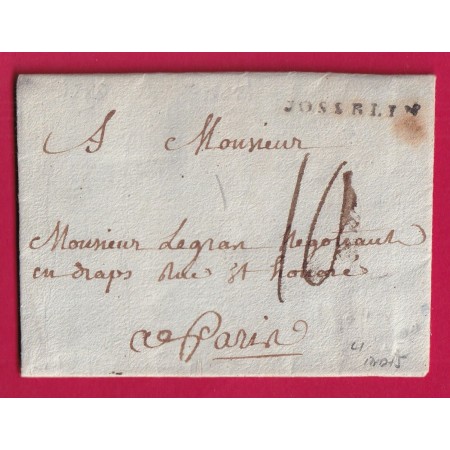 JOSSELIN
A Monsieur
10
Monsieur Legran Negotiant
en draps Rue St honoré
a Paris